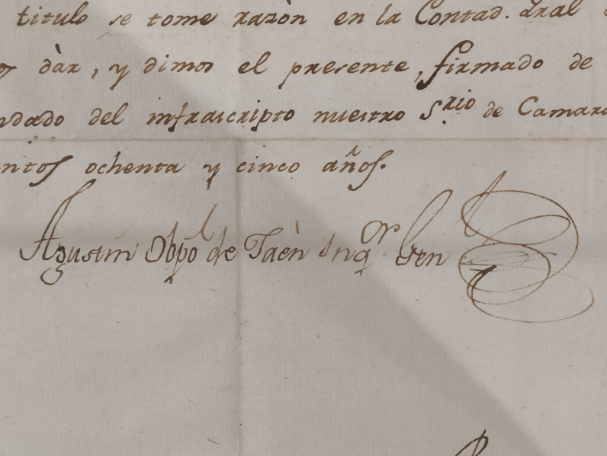 titulo se tome razòn en la Contad. gral
dàr, y dimos el presente, firmado de
ndado del infrascripto nuestro Srio de Camara
ntos ochenta y cinco años.
Agustin Obpo de Jaèn Inqr Gen